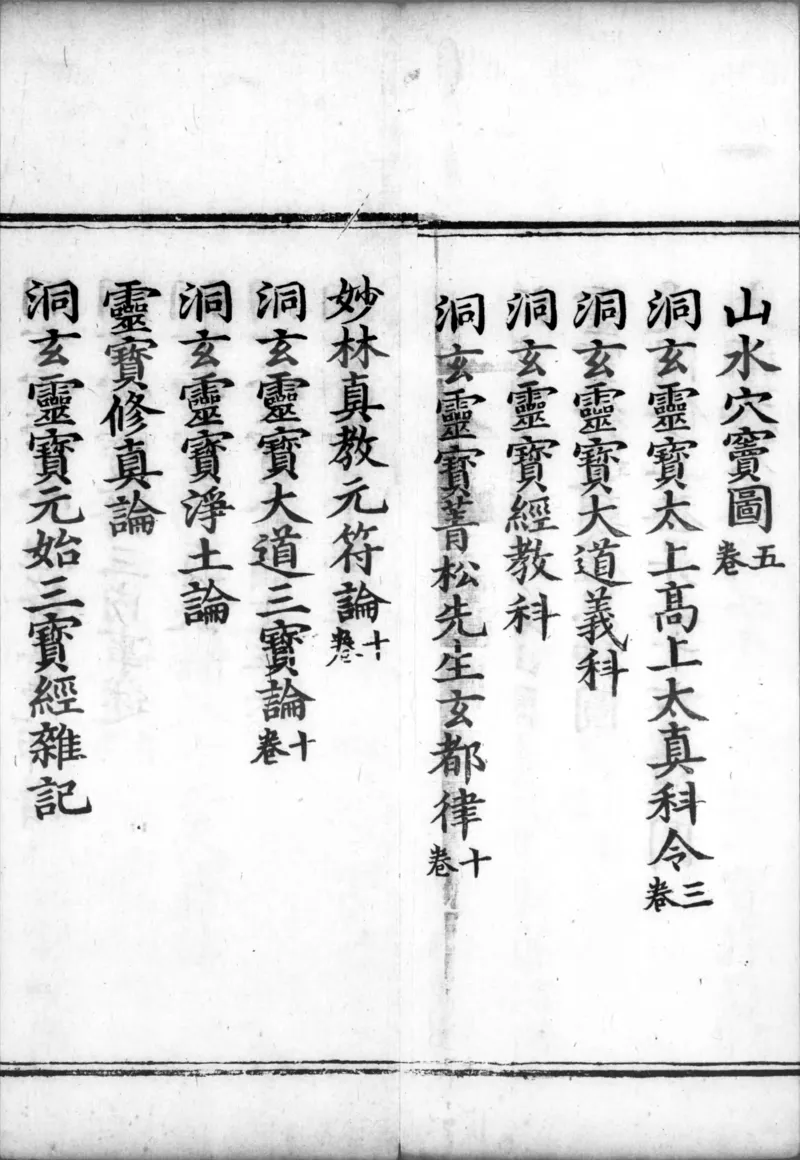 山水穴竇圖五卷
洞玄靈寶太上高上太真科令三卷
洞玄靈寶大道義科
洞玄靈寶經教科
洞玄靈寶菁松先生玄都律十卷
妙林真教元符論十卷
洞玄靈寶大道三寶論十卷
洞玄靈寶淨土論
靈寶修真論
洞玄靈寶元始三寶經雜記